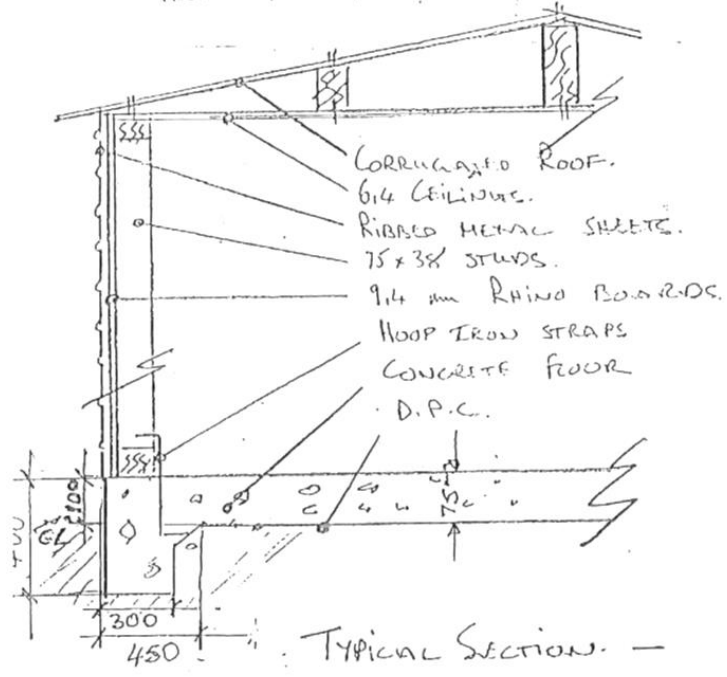 CORRUGATED ROOF.
6,4 CEILINGS.
RIBBED METAL SHEETS.
75 x 38 STUDS.
9,4 mm RHINO BOARDS.
HOOP IRON STRAPS
CONCRETE FLOOR
D.P.C.
75
400
2100
GL
300
450
TYPICAL SECTION. —